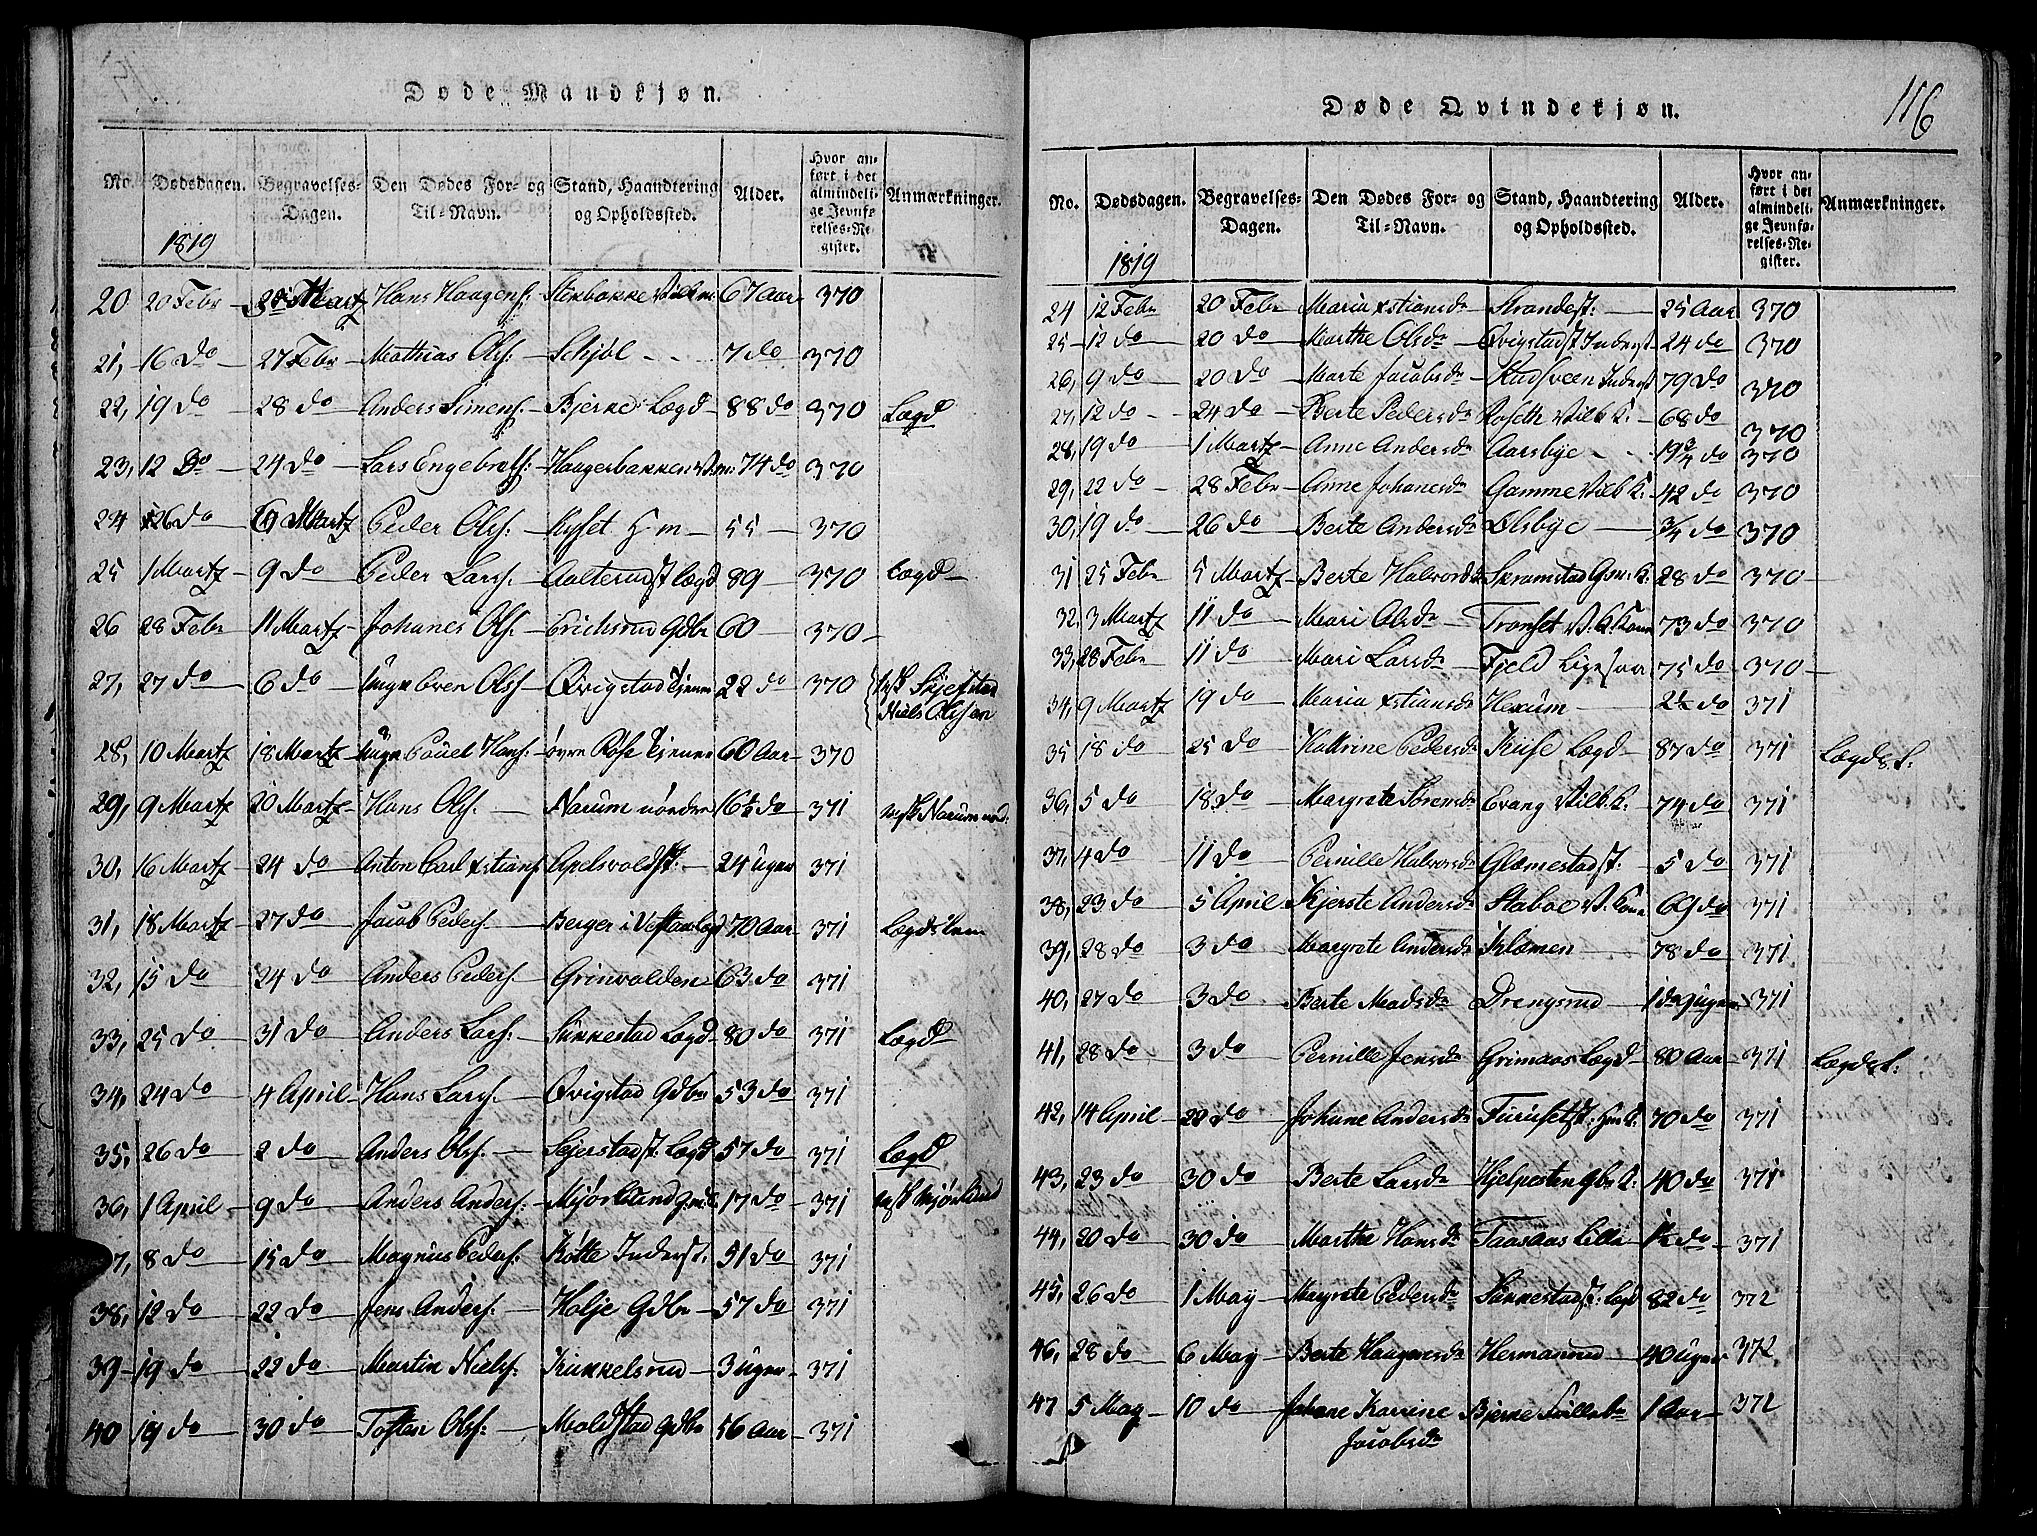 Døde Mandkjøn.
No. Dødsdagen. Begravelses-Dagen. Den Dødes For- og Til-Navn. Stand, Haandtering og Opholdssted. Alder. Hvor anført i det almindelige Jevnførelses-Register. Anmærkninger.
1819
20 20 Febr Martz Hans Haagens: 67 Aar 370
21, 16 do 27 Febr Mathias Ols: Schjøl 7 do 370
22, 19 do 28 do Anders Simens: Bjerke Lægd 88 do 370 Lægd
23, 12 Do 24 do Lars Engebrets: Haagerbakken 74 do 370
24 26 do Martz Peder Ols: Hysset Hm 55 370
25 1 Martz 9 do Peder Lars: Aalterudst Lægd 89 370 Lægd
26 28 Febr 11 Martz Johanes Ols: Erichsrud Gdbr 60 370
27, 27 do 6 do Ungk Even Ols: Qvigstad tjener 22 do 370 Skjefstad
Niels Olsen
28, 10 Martz 18 Martz Ungk Pouel Hans: øvre Rose tjener 60 Aar 370
29, 9 Martz 20 Martz Hans Ols: Narum nordre 16½ do 371 Narum nord:
30, 16 Martz 24 do Anton Carl Xstians: Apelsvoldst: 24 Uger 371
31, 18 Martz 27 do Jacob Peders: Berger i 70 Aar 371 Lægdslem
32, 15 do 24 do Anders Peders: Grinvolden 63 do 371
33, 25 do 31 do Anders Lars: Sukkestad Lægd 80 do 371 Lægd
34, 24 do 4 April Hans Lars: Qvigstad Gdbr 53 do 371
35, 26 do 2 do Anders Ols: Sejerstadst: Lægd 57 do 371 Lægd
36, 1 April 9 do Anders Anders: Mjørlund 17 do 371 Mjørlund
37, 8 do 15 do Magnus Peders: Kølte Inderst: 51 do 371
38, 12 do 22 do Jens Anders: Holje Gdbr 57 do 371
39 19 do 22 do Martin Niels: Kinkelsrud 3 Uger 371
40 19 do 30 do Tosten Ols: Moldstad Gdbr 56 Aar 371
116
Døde Qvindekjøn.
No. Dødsdagen. Begravelses-Dagen. Den Dødes For- og Til-Navn. Stand, Haandtering og Opholdssted. Alder. Hvor anført i det almindelige Jevnførelses-Register. Anmærkninger.
1819
24 12 Febr 20 Febr Maria Xstiansdr Strandest: 25 Aar 370
25 12 do 20 do Marthe Olsdr Qvigstadst Inderst 24 do 370
26, 9 do 20 do Marte Jacobsdr Stadsveen Inderst 79 do 370
27, 12 do 24 do Berte Pedersdr Roseth Vilb K: 68 do 370
28, 19 do 1 Martz Anne Andersdr Aarsbye 19¾ do 370
29, 22 do 28 Febr Anne Johanesdr Gamme Vilb K: 42 do 370
30, 19 do 26 do Berte Andersdr Ølsbye ¾ do 370
31 25 Febr 5 Martz Berte Halvordsdr Skramstad Gm: K: 28 do 370
32, 3 Martz 11 do Mari Olsdr Tronset V. K: Kone 73 do 370
33, 28 Febr 11 do Mari Larsdr Fjeld Ligesaa 75 do 370
34, 9 Martz 19 do Maria Xstiansdr Hexum 2½ do 371
35 18 do 25 do Kattrine Pedersdr Kuse Lægd 87 do 371 Lægds L:
36, 5 do 18 do Margrete Sørensdr Evang Vilb K: 74 do 371
37, 4 do 11 do Pernille Halvorsdr Glæmestadst: 5 do 371
38, 23 do 5 April Kjerste Andersdr Staboe V. Kone 69 do 371
39, 28 do 3 do Margrete Andersdr Klæmen 78 do 371
40, 27 do 3 do Berte Madsdr Drengsrud 1 dag 371
41, 28 do 3 do Pernille Jensdr Grimaas Lægd 80 Aar 371 Lægds L:
42, 14 April 22 do Johane Andersdr Furusetst: Hm K: 70 do 371
43, 23 do 30 do Berte Larsdr Hjelpesten Gbr K: 40 do 371
44, 20 do 30 do Marthe Hansdr Taasaas Lille 1½ do 371
45, 26 do 1 May Margrete Pedersdr Sukkestadst: Lægd 82 do 372
46, 28 do 6 May Berte Haagensdr Hermanrud 40 Uger 372
47 5 May 10 do Johane Karine Bjerke 1 Aar 372
Jacobsdr